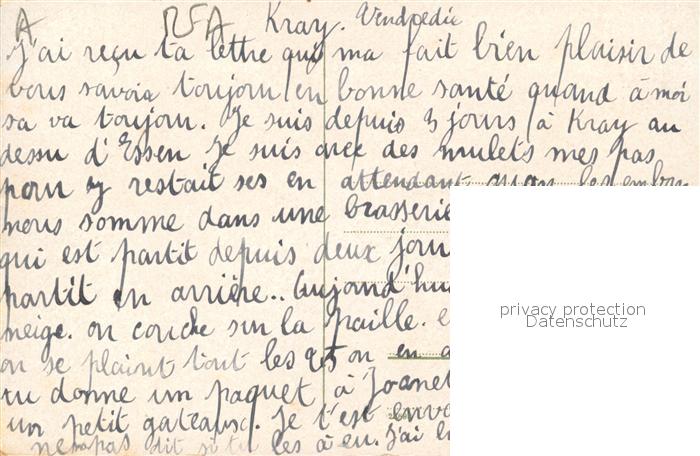 A RFA Kray. Vendredie
j'ai reçu ta lettre qui ma fait bien plaisir de
vous savoir toujour en bonne santé quand à moi
sa va toujour. Je suis depuis 3 jours à Kray au
dessu d'Essen Je suis avec des mulets mes pas
pour y restait ses en attendant quon les embar
nous somme dans une brasserie
qui est partit depuis deux jour
partit en arrière.. Aujord'hui
neige. on couche sur la paille.
on se plaint tout les on en
tu donne un paquet à Joanet
un petit gateaux. Je t'est envo
ne pas dit si tu les à eu. J'ai
privacy protection
Datenschutz